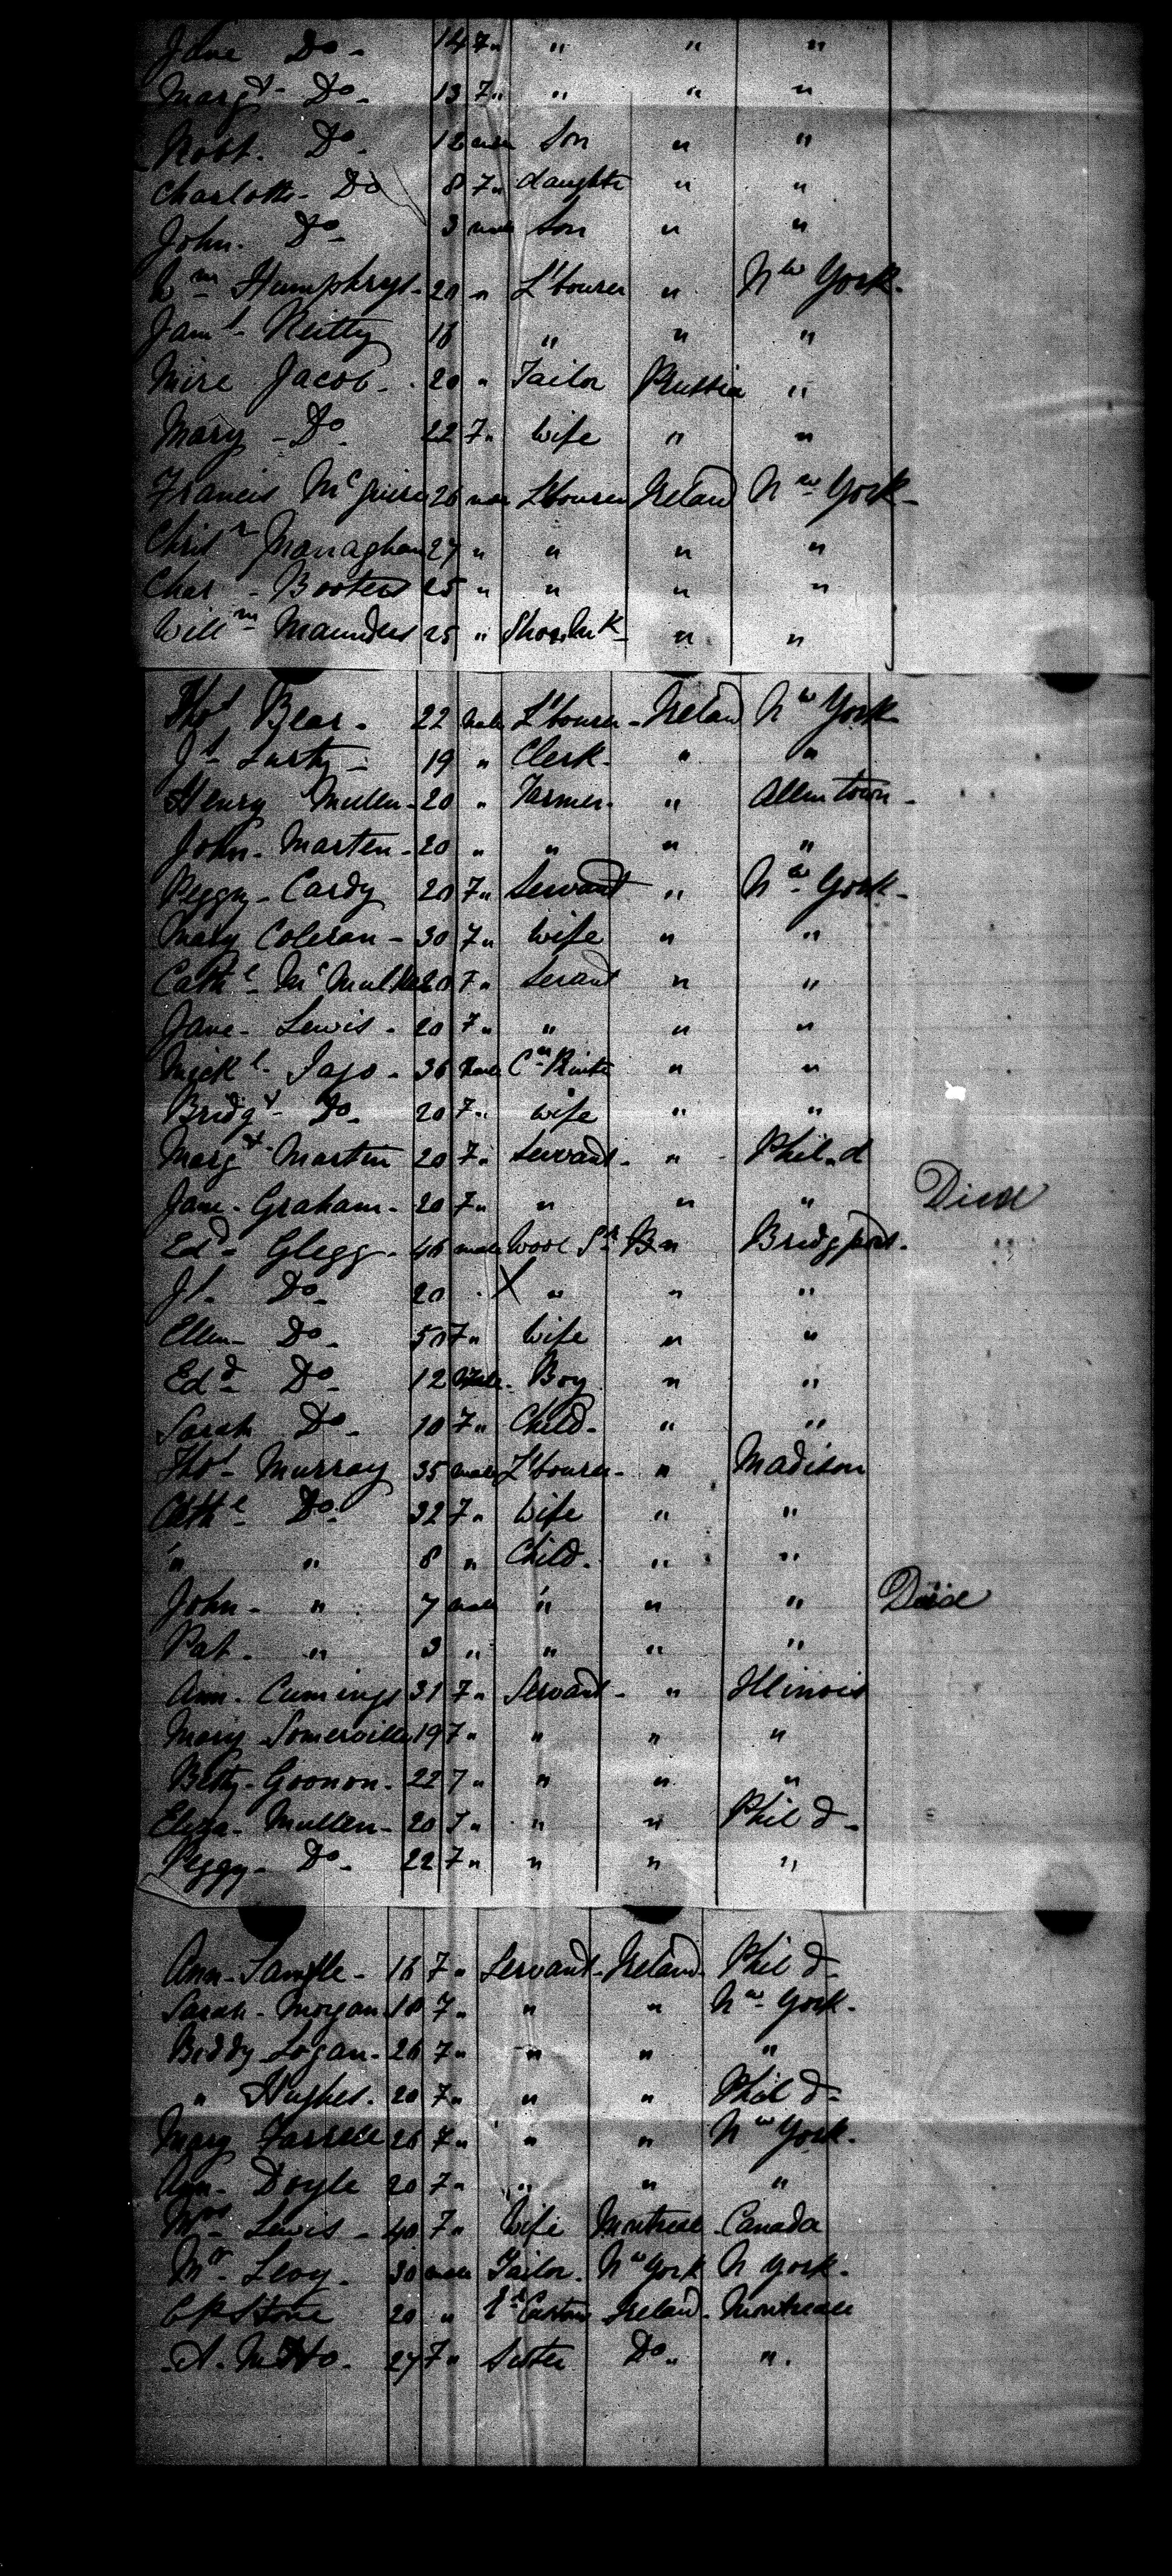 Jane Do - 14 F " " " "
Margt - Do - 13 F " " " "
Robt. Do - 12 male Son " "
Charlotte - Do 8 F " daughter " "
John. Do - 3 male Son " "
Wm Humphrys - 20 " L'bourer " Nw York.
Jams - 18 " " "
Mire Jacob - 20 " Tailor Prussia "
Mary - Do - 22 F " Wife " "
Francis McGuire 26 male L'bourer Ireland Nw York -
Chrisr Monaghan 27 " " " "
Char - Booters 25 " " " "
Willm Maunders 25 " " "
Thos Bear - 22 male L'bourer - Ireland Nw York
Js - 19 " Clerk - " "
Henry Mullen - 20 " Farmer - " Allentown -
John - Marten - 20 " " " "
Peggy - Cardy 20 F " Servant " Nw York -
Mary Coleran - 30 F " Wife " "
Cathe McMullen 20 F " Serant " "
Jane - Lewis - 20 F " " " "
Mickl - Jago - 36 male " "
Bridgt - Do - 20 F " Wife " "
Margt Martin 20 F " Servant - " - Phil.d
Jane - Graham - 20 F " " " " Died
Edd - Glegg - 46 male Wool " Bridgport.
Js - Do - 20 . X " " "
Ellen - Do - 50 F " Wife " "
Edd - Do - 12 Male - Boy " "
Sarah Do - 10 F " Child - " "
Thos - Murray 35 male L'bourer - " Madison
Cathe - Do - 32 F " Wife " "
" " 8 " Child. " "
John - " 7 male " " " Died
Pat. " 3 " " " "
Ann - Cumings 31 F " Servant - " Illinois
Mary Somerville 19 F " " " "
Betty - Goonon - 22 F " " " "
Eliza - Mullen - 20 F " " " Phil d -
Peggy - Do - 22 F " " " "
Ann - Sample - 18 F " Servant - Ireland - Phil d -
Sarah - Moyan 18 F " " " Nw York.
Biddy Logan - 26 F " " " "
" Hughes. 20 F " " " Phil d -
Mary Farrell 26 F " " " Nw York.
Ann - Doyle 20 F " " " "
Mrs Lewis - 40 F " Wife Montreal - Canada
Mr Levy - 30 male Tailor. Nw York N York.
20 " Ireland - Montreal
A. 27 F " Sister Do " "